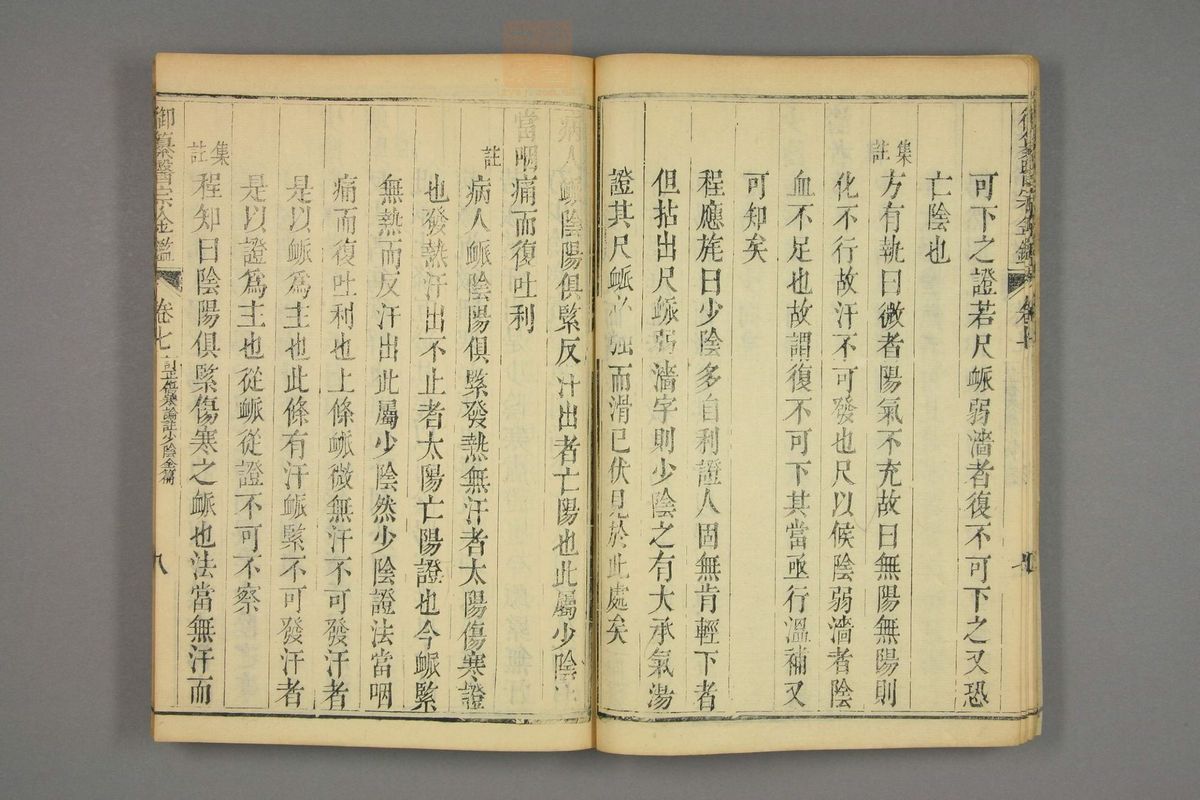 可下之證若尺䘑弱濇者復不可下之又恐
亡陰也
集註
方有執曰微者陽氣不充故曰無陽無陽則
化不行故汗不可發也尺以候陰弱濇者陰
血不足也故謂復不可下其當亟行溫補又
可知矣
程應旄曰少陰多自利證人固無肯輕下者
但拈出尺䘑弱濇字則少陰之有大承氣湯
證其尺䘑必强而滑已伏見於此處矣
病人䘑陰陽俱緊反汗出者亡陽也此屬少陰法
當咽痛而復吐利
註
病人䘑陰陽俱緊發熱無汗者太陽傷寒證
也發熱汗出不止者太陽亡陽證也今䘑緊
無熱而反汗出此屬少陰然少陰證法當咽
痛而復吐利也上條䘑微無汗不可發汗者
是以䘑爲主也此條有汗䘑緊不可發汗者
是以證爲主也從䘑從證不可不察
集註
程知曰陰陽俱緊傷寒之䘑也法當無汗而
御纂醫宗金鑑
卷七
訂正傷寒論註少陰全篇
八